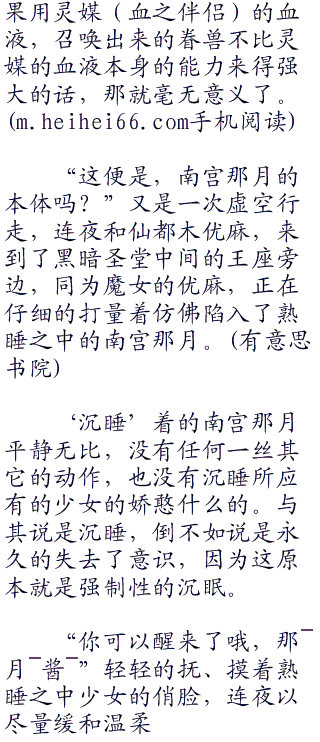 果用灵媒（血之伴侣）的血
液，召唤出来的眷兽不比灵
媒的血液本身的能力来得强
大的话，那就毫无意义了。
(m.heihei66.com手机阅读)
“这便是，南宫那月的
本体吗？”又是一次虚空行
走，连夜和仙都木优麻，来
到了黑暗圣堂中间的王座旁
边，同为魔女的优麻，正在
仔细的打量着仿佛陷入了熟
睡之中的南宫那月。(有意思
书院)
‘沉睡’着的南宫那月
平静无比，没有任何一丝其
它的动作，也没有沉睡所应
有的少女的娇憨什么的。与
其说是沉睡，倒不如说是永
久的失去了意识，因为这原
本就是强制性的沉眠。
“你可以醒来了哦，那¯
月¯酱¯”轻轻的抚、摸着熟
睡之中少女的俏脸，连夜以
尽量缓和温柔